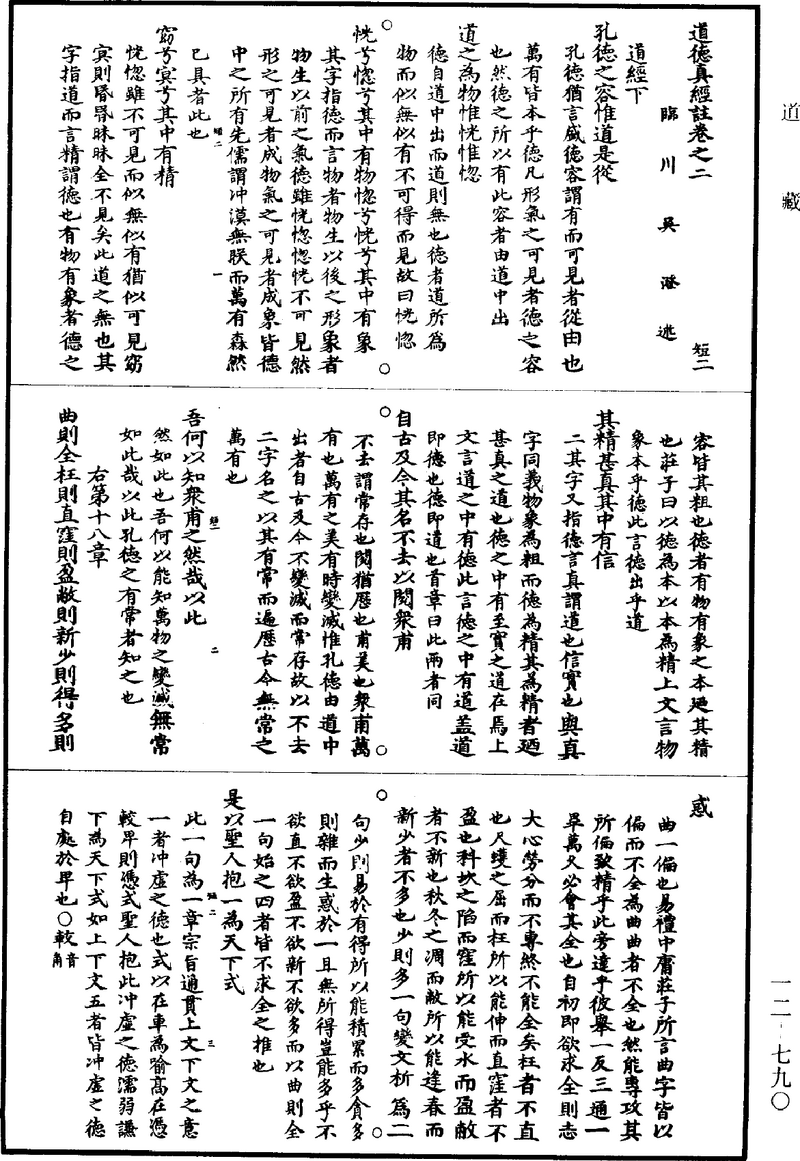 道藏
道德真經註卷之二　短二
臨川吳澄述
道經下
孔德之容惟道是從
孔德猶言盛德容謂有而可見者從由也
萬有皆本乎德凡形氣之可見者德之容
也然德之所以有此容者由道中出
道之為物惟恍惟惚
德自道中出而道則無也德者道所為
物而似無似有不可得而見故曰恍惚
恍兮惚兮其中有物惚兮恍兮其中有象
其字指德而言物者物生以後之形象者
物生以前之氣德雖恍惚惚恍不可見然
形之可見者成物氣之可見者成象皆德
中之所有先儒謂冲漠無朕而萬有森然
已具者此也
短二
一
窈兮冥兮其中有精
恍惚雖不可見而似無似有猶似可見窈
冥則昏昏昧昧全不見矣此道之無也其
字指道而言精謂德也有物有象者德之
容皆其粗也德者有物有象之本廼其精
也莊子曰以德為本以本為精上文言物
象本乎德此言德出乎道
其精甚真其中有信
二其字又指德言真謂道也信實也與真
字同義物象為粗而德為精其為精者廼
甚真之道也德之中有至實之道在焉上
文言道之中有德此言德之中有道蓋道
即德也德即道也首章曰此兩者同
自古及今其名不去以閱衆甫
不去謂常存也閱猶歷也甫美也衆甫萬
有也萬有之美有時變滅惟孔德由道中
出者自古及今不變滅而常存故以不去
二字名之以其有常而遍歷古今無常之
萬有也
短二
二
吾何以知衆甫之然哉以此
然如此也吾何以能知萬物之變滅無常
如此哉以此孔德之有常者知之也
右第十八章
曲則全枉則直窪則盈敝則新少則得多則
惑
曲一偏也易禮中庸莊子所言曲字皆以
偏而不全為曲曲者不全也然能專攻其
所偏致精乎此旁達乎彼舉一反三通一
畢萬久必會其全也自初即欲求全則志
大心勞分而不專終不能全矣枉者不直
也尺蠖之屈而枉所以能伸而直窪者不
盈也科坎之陷而窪所以能受水而盈敝
者不新也秋冬之凋而敝所以能逢春而
新少者不多也少則多一句變文析為二
句少則易於有得所以能積累而多貪多
則雜而生惑於一且無所得豈能多乎不
欲直不欲盈不欲新不欲多而以曲則全
一句始之四者皆不求全之推也
是以聖人抱一為天下式
短二
三
此一句為一章宗旨通貫上文下文之意
一者冲虛之德也式以在車為喻高在憑
較卑則憑式聖人抱此冲虛之德濡弱謙
下為天下式如上下文五者皆冲虛之德
自處於卑也○較音角
一二—七九〇